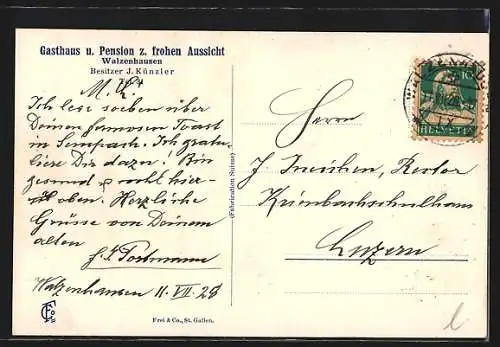 Gasthaus u. Pension z. frohen Aussicht
Walzenhausen
Besitzer J. Künzler
M. L.!
Ich lese soeben über
Deinen famosen Toast
in Sempach. Ich gratu-
liere Dir dazu. Bin
gesund u. wohl hier-
oben. Herzliche
Grüsse von Deinem
alten
Portmann
Walzenhausen 11. VII. 28
Frei & Co., St. Gallen.
(Fabrication Suisse)
WALZENHAUSEN
10
HELVETIA
Herrn
J. Ineichen, Rektor
Krienbachschulhaus
Luzern